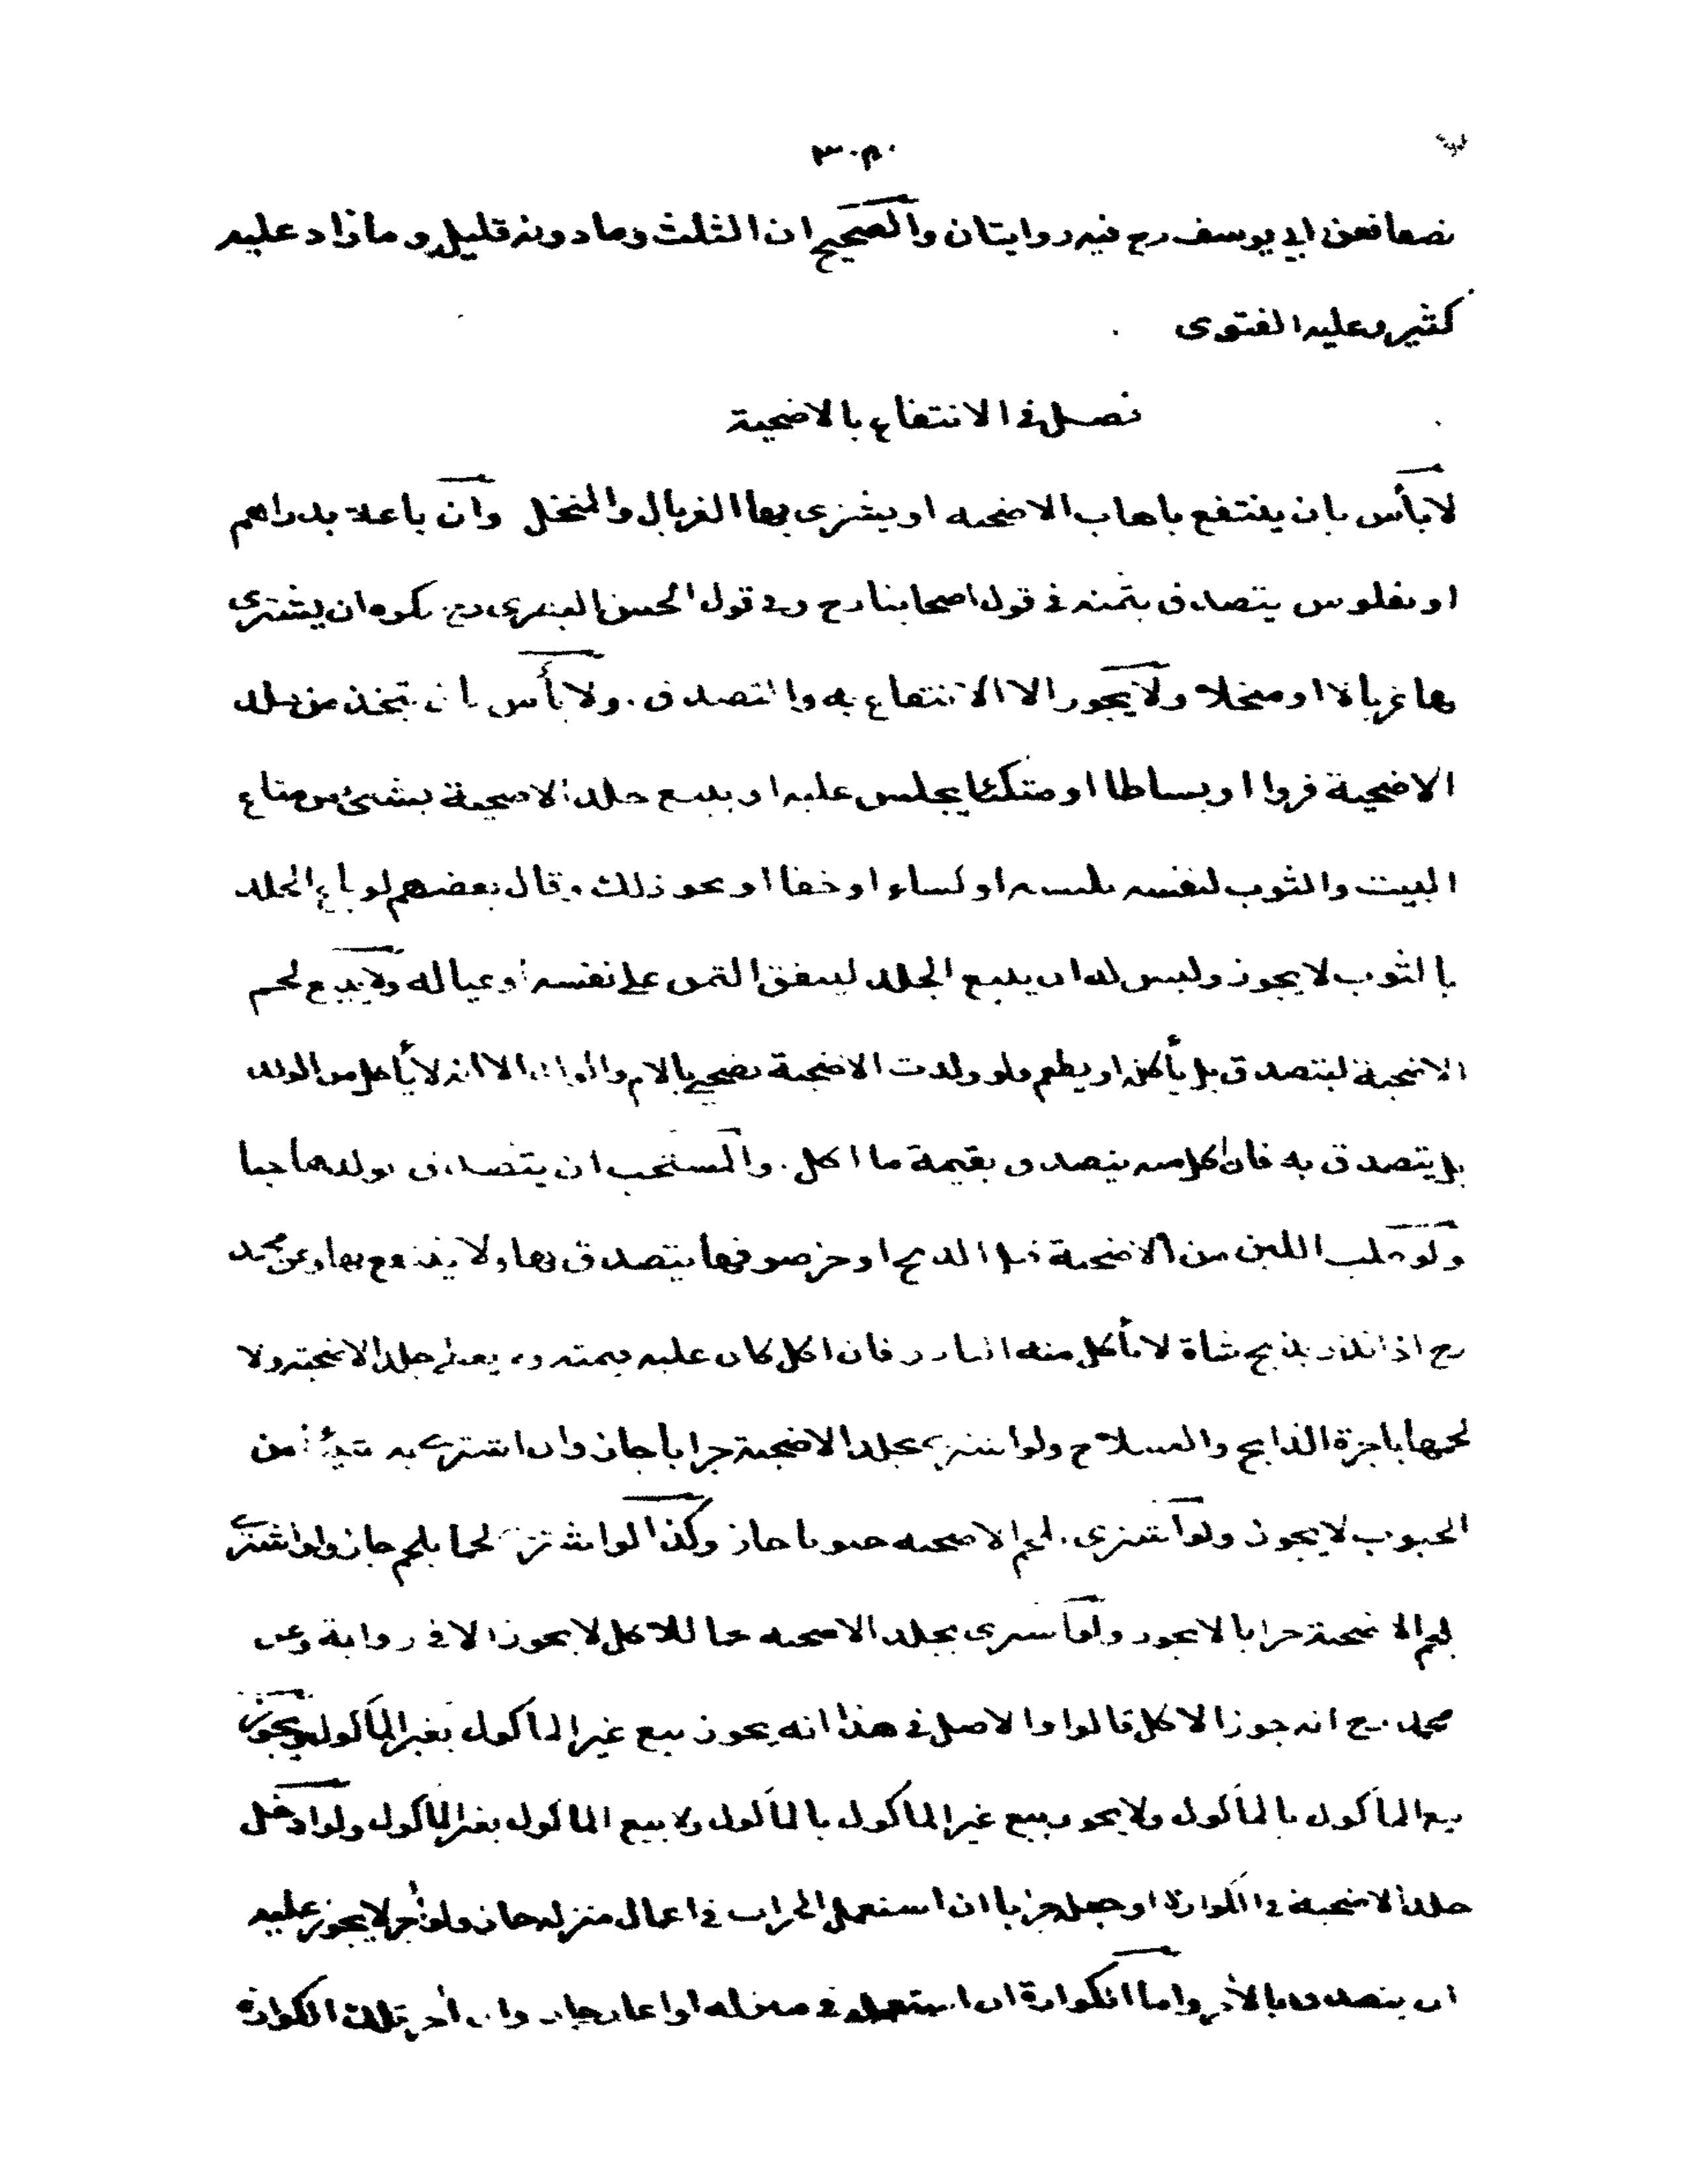 ٣٠٣
نصفا فعن ابي يوسف رح فيه روايتان والصحيح ان الثلث وما دونه قليل وما زاد عليه
كثير وعليه الفتوى
فصل في الانتفاع بالاضحية
لا بأس بان ينتفع باهاب الاضحية او يشترى بها الغربال والمنخل وان باعه بدراهم
او بفلوس يتصدق بثمنه في قول اصحابنا رح وفي قول الحسن البصرى رح يكره ان يشترى
بها غربالا او منخلا ولا يجوز الا الانتفاع به والتصدق . ولا بأس بان تتخذ من جلد
الاضحية فروا او بساطا او متكئا يجلس عليه او يبيع جلد الاضحية بشئ من متاع
البيت والثوب لنفسه يلبسه او كساء او خفا او نحو ذلك وقال بعضهم لو باع الجلد
بالثوب لا يجوز وليس له ان يبيع الجلد لينفق الثمن على نفسه او عياله ولا يبيع لحم
الاضحية ليتصدق بل يأكل او يطعم ولو ولدت الاضحية يضحي بالام والولد الا انه لا يأكل من الولد
بل يتصدق به فان اكل منه يتصدق بقيمة ما اكل . والمستحب ان يتصدق بولدها حيا
ولو حلب اللبن من الاضحية قبل الذبح او جز صوفها يتصدق بها ولا ينتفع بها وعن محمد
رح اذا نذر بذبح شاة لا يأكل منه الناذر فان اكل كان عليه قيمته ولا يعطى جلد الاضحية ولا
لحمها باجرة الذابح والسلاح ولو اشترى بجلد الاضحية جرابا جاز وان اشترى به شيئا من
الحبوب لا يجوز ولو اشترى بلحم الاضحية حبوبا جاز وكذا لو اشترى لحما بلحم جاز ولو اشترى
بلحم الاضحية جرابا لا يجوز ولو اشترى بجلد الاضحية للاكل لا يجوز الا في رواية وعن
محمد رح انه جوز الاكل قالوا والاصل في هذا انه يجوز بيع غير المأكول بغير المأكول ويجوز
بيع المأكول بالمأكول ولا يجوز بيع غير المأكول بالمأكول ولا بيع المأكول بغير المأكول ولو ادخل
جلد الاضحية في الكوارة او جعل جرابا ان استعمل الجراب في اعمال منزله جاز ولو آجر لا يجوز عليه
ان يتصدق بالاجر واما الكوارة ان استعمله في منزله او اعار جاز وان آجر تلك الكوارة